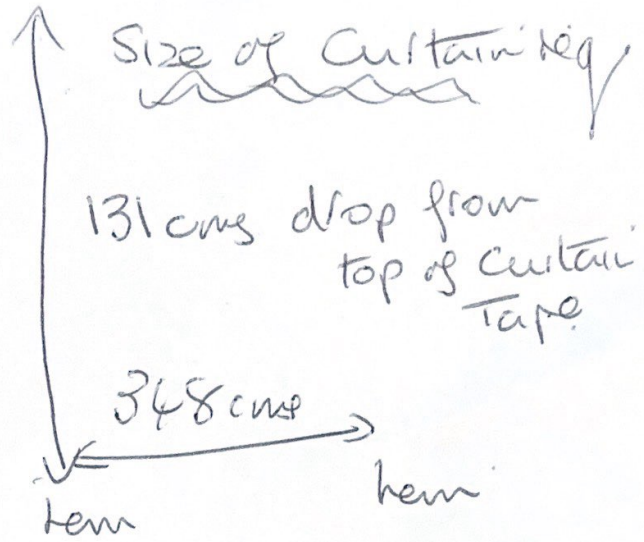 Size of Curtain req
131 cms drop from
top of Curtain
Tape
348 cms
hem
hem